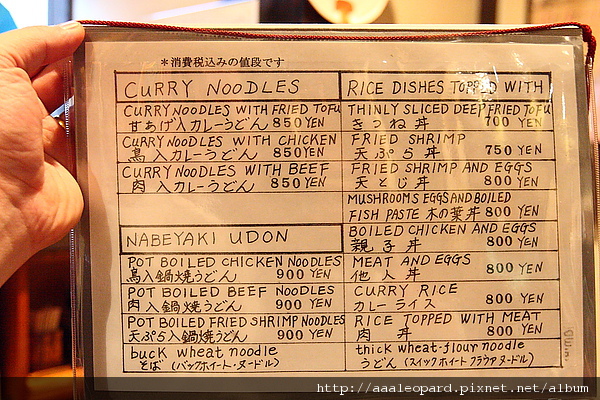 *消費税込みの値段です
CURRY NOODLES
CURRY NOODLES WITH FRIED TOFU
甘あげ入カレーうどん 850YEN
CURRY NOODLES WITH CHICKEN
鳥入カレーうどん 850YEN
CURRY NOODLES WITH BEEF
肉入カレーうどん 850YEN
NABEYAKI UDON
POT BOILED CHICKEN NOODLES
鳥入鍋焼うどん 900 YEN
POT BOILED BEEF NOODLES
肉入鍋焼うどん 900 YEN
POT BOILED FRIED SHRIMP NOODLES
天ぷら入鍋焼うどん 900 YEN
buck wheat noodle
そば (バックホイート・ヌードル)
RICE DISHES TOPPED WITH
THINLY SLICED DEEP FRIED TOFU
きつね丼 700 YEN
FRIED SHRIMP
天ぷら丼 750 YEN
FRIED SHRIMP AND EGGS
天とじ丼 800 YEN
MUSHROOMS EGGS AND BOILED
FISH PASTE 木の葉丼 800 YEN
BOILED CHICKEN AND EGGS
親子丼 800 YEN
MEAT AND EGGS
他人丼 800 YEN
CURRY RICE
カレーライス 800 YEN
RICE TOPPED WITH MEAT
肉丼 800 YEN
thick wheat-flour noodle
うどん (スイックホイートフラウアヌードル)
http://aaaleopard.pixnet.net/album